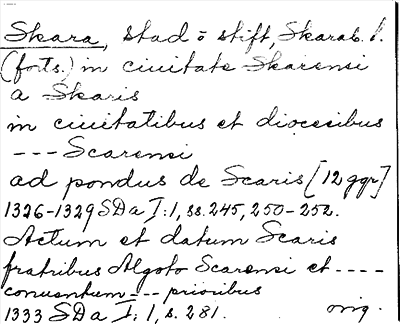 Skara, stad o stift, Skarab. l.
(forts.) in ciuitate Skarensi
a Skaris
in ciuitatibus et diocesibus
--- Scarensi
ad pondus de Scaris [12 ggr]
1326-1329 SDa I:1, ss. 245, 250-252.
Actum et datum Scaris
fratribus Algoto Scarensi et ----
conuentum --- prioribus
1333 SDa I:1, s. 281. orig.